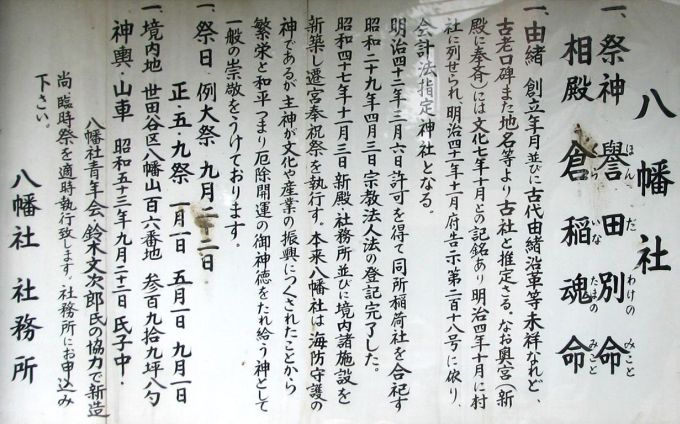 八幡社
一、祭神 譽田別命
ほんだわけのみこと
相殿 倉稲魂命
くらいなたまのみこと
一、由緒 創立年月並びに古代由緒沿革等未祥なれど、
古老口碑また地名等より古社と推定さる。なお奥宮(新
殿に奉斉)には文化七年十月との記銘あり明治四年十月に村
社に列せられ、明治四十一年十一月府告示第二百十八号に依り、
会計法指定神社となる。
明治四十二年三月六日許可を得て同所稲荷社を合祀す
昭和二十九年四月三日宗教法人法の登記完了した。
昭和四十七年十二月三日新殿、社務所並びに境内諸施設を
新築し遷宮奉祝祭を執行す。本来八幡社は海防守護の
神であるが主神が文化や産業の振興につくされたことから
繁栄と和平つまり厄除開運の御神徳をたれ給う神として
一般の崇敬をうけております。
一、祭日 例大祭 九月二十二日
正・五・九祭 一月一日 五月一日 九月一日
一、境内地 世田谷区八幡山百六番地 参百九拾九坪八勺
神輿・山車 昭和五十三年九月二十二日 氏子中・
八幡社青年会 鈴木文次郎氏の協力で新造
尚、臨時祭を適時執行致します。社務所にお申込み
下さい。
八幡社 社務所